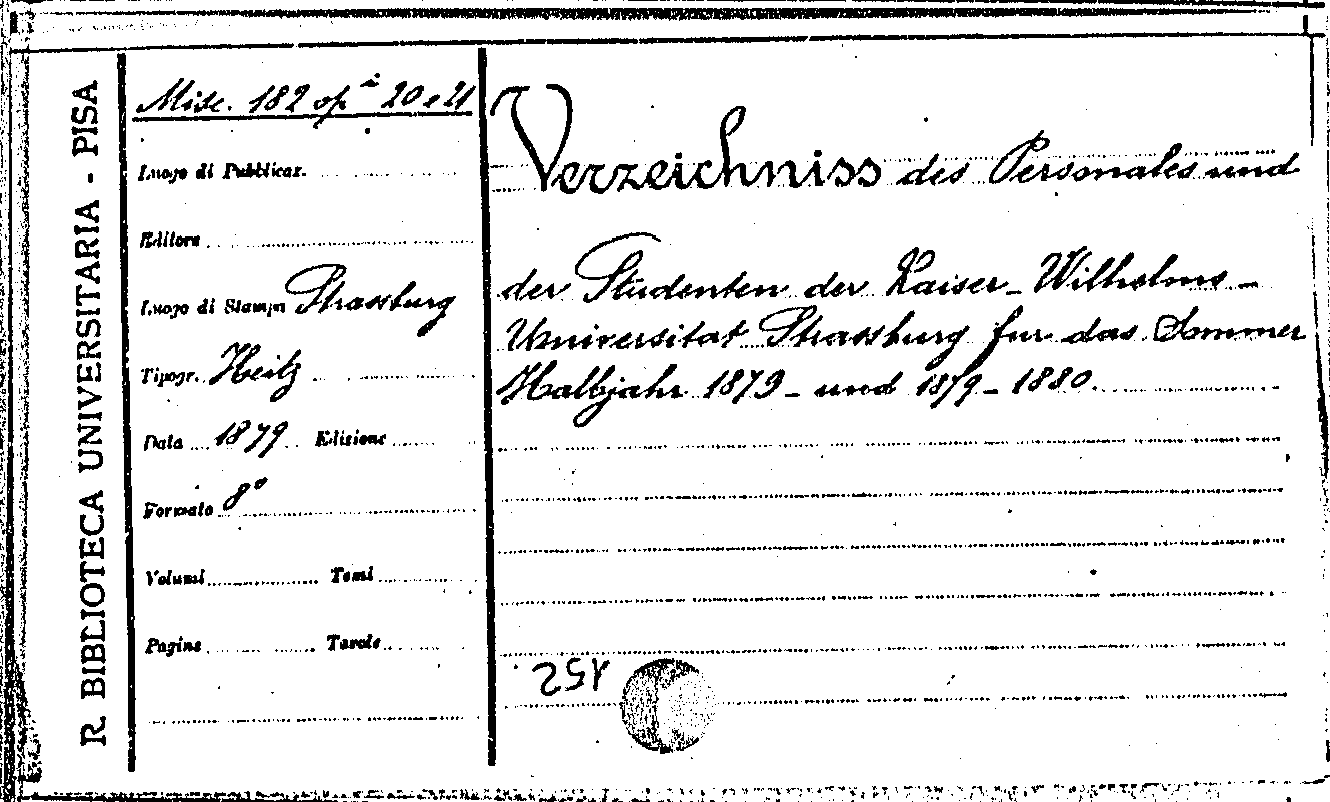 R. BIBLIOTECA UNIVERSITARIA - PISA
Misc. 182 op i 20 e 21
Luogo di Pubblicaz.
Editore
Luogo di Stampa Strassburg
Tipogr. Heitz
Data 1879 Edizione
Formato 8°
Volumi Tomi
Pagine Tavole
Verzeichniss des Personales und
der Studenten der Kaiser-Wilhelms-
Universitat Strassburg fur das Sommer
Halbjahr 1879 - und 1879-1880.
152